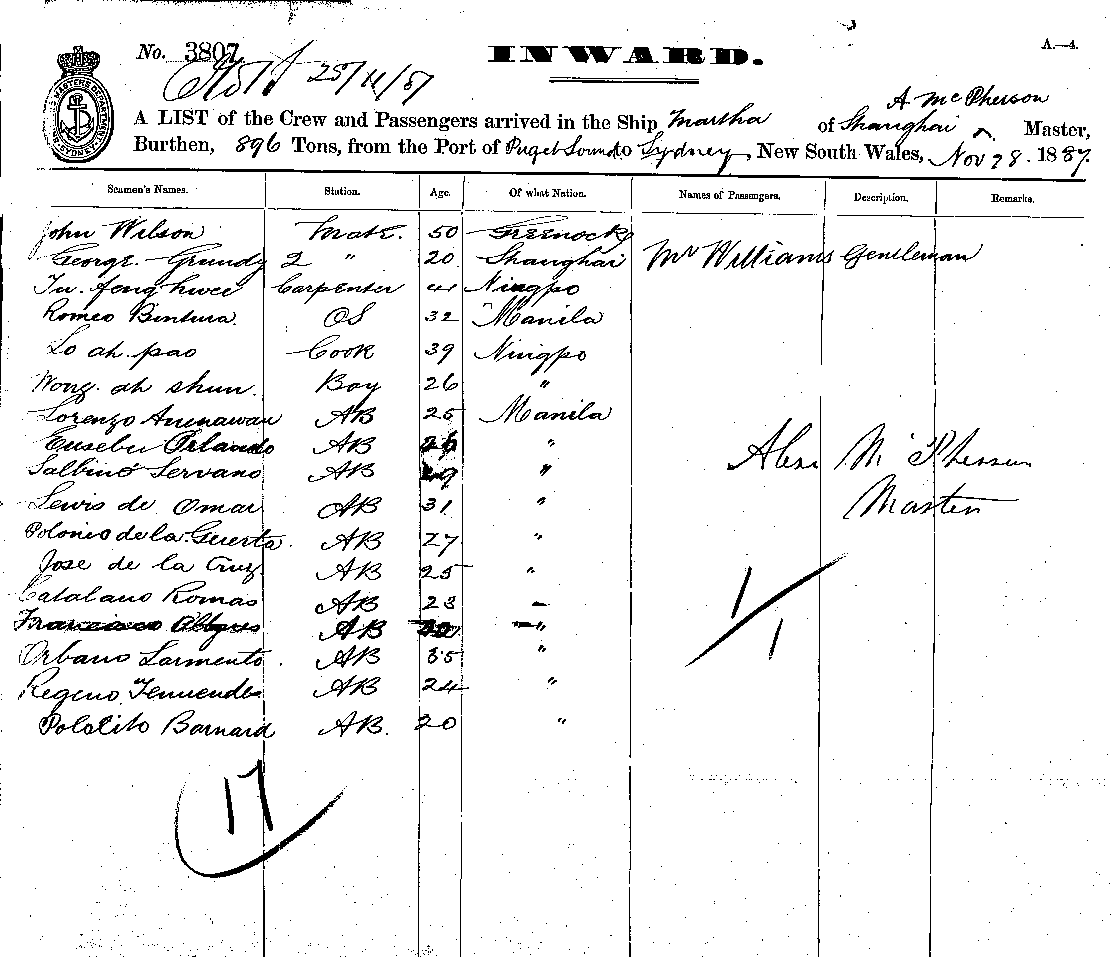 No. 3807
INWARD.
A.—4.
25/11/87
A McPherson
A LIST of the Crew and Passengers arrived in the Ship Martha of Shanghai Master,
Burthen, 896 Tons, from the Port of Puget Sound to Sydney, New South Wales, Nov 28. 1887.
Seamen's Names. Station. Age. Of what Nation. Names of Passengers. Description. Remarks.
John Wilson Mate. 50 Greenock
George Grundy 2 " 20 Shanghai Mr Williams Gentleman
Carpenter 41 Ningpo
Romeo Bintura. OS 32 Manila
Lo ah pao Cook 39 Ningpo
Wong ah shun. Boy 26 "
Lorenzo AB 25 Manila
Eusebu Orlando AB 26 "
Salbino Servano AB 29 "
Alex McPherson
Lewis de Omar AB 31 "
Master
Polonio de la Guerta. AB 27 "
Jose de la Cruz AB 25 "
Catalano Romas AB 23
Francisco AB "
1/1
Orbano Sarmento. AB 35 "
Regeno AB 24 "
Polalito Barnard AB. 20 "
17